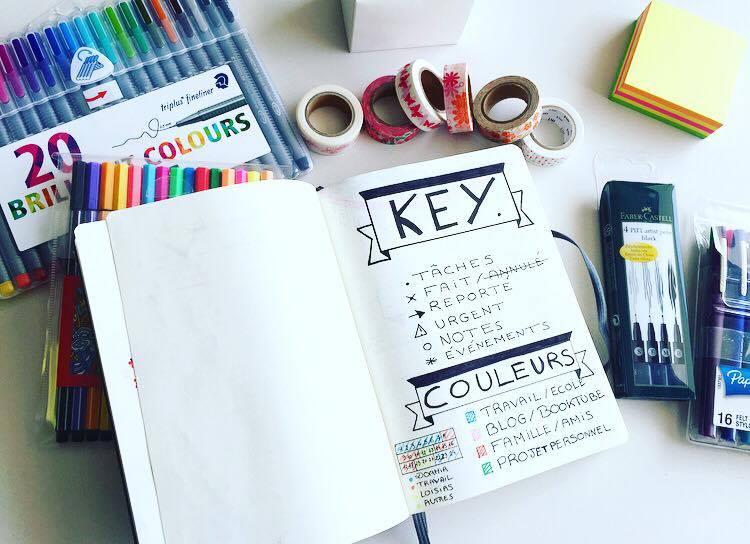 triplus® fineliner
20
BRILLIANT COLOURS
KEY.
• TÂCHES
× FAIT / ANNULÉ
→ REPORTÉ
⚠ URGENT
○ NOTES
* ÉVÉNEMENTS
COULEURS
TRAVAIL / ÉCOLE
BLOG / BOOKTUBE
FAMILLE / AMIS
PROJET PERSONNEL
TRAVAIL
LOISIRS
AUTRES
FABER-CASTELL
4 PITT artist pens
black
Pap
16 FELT